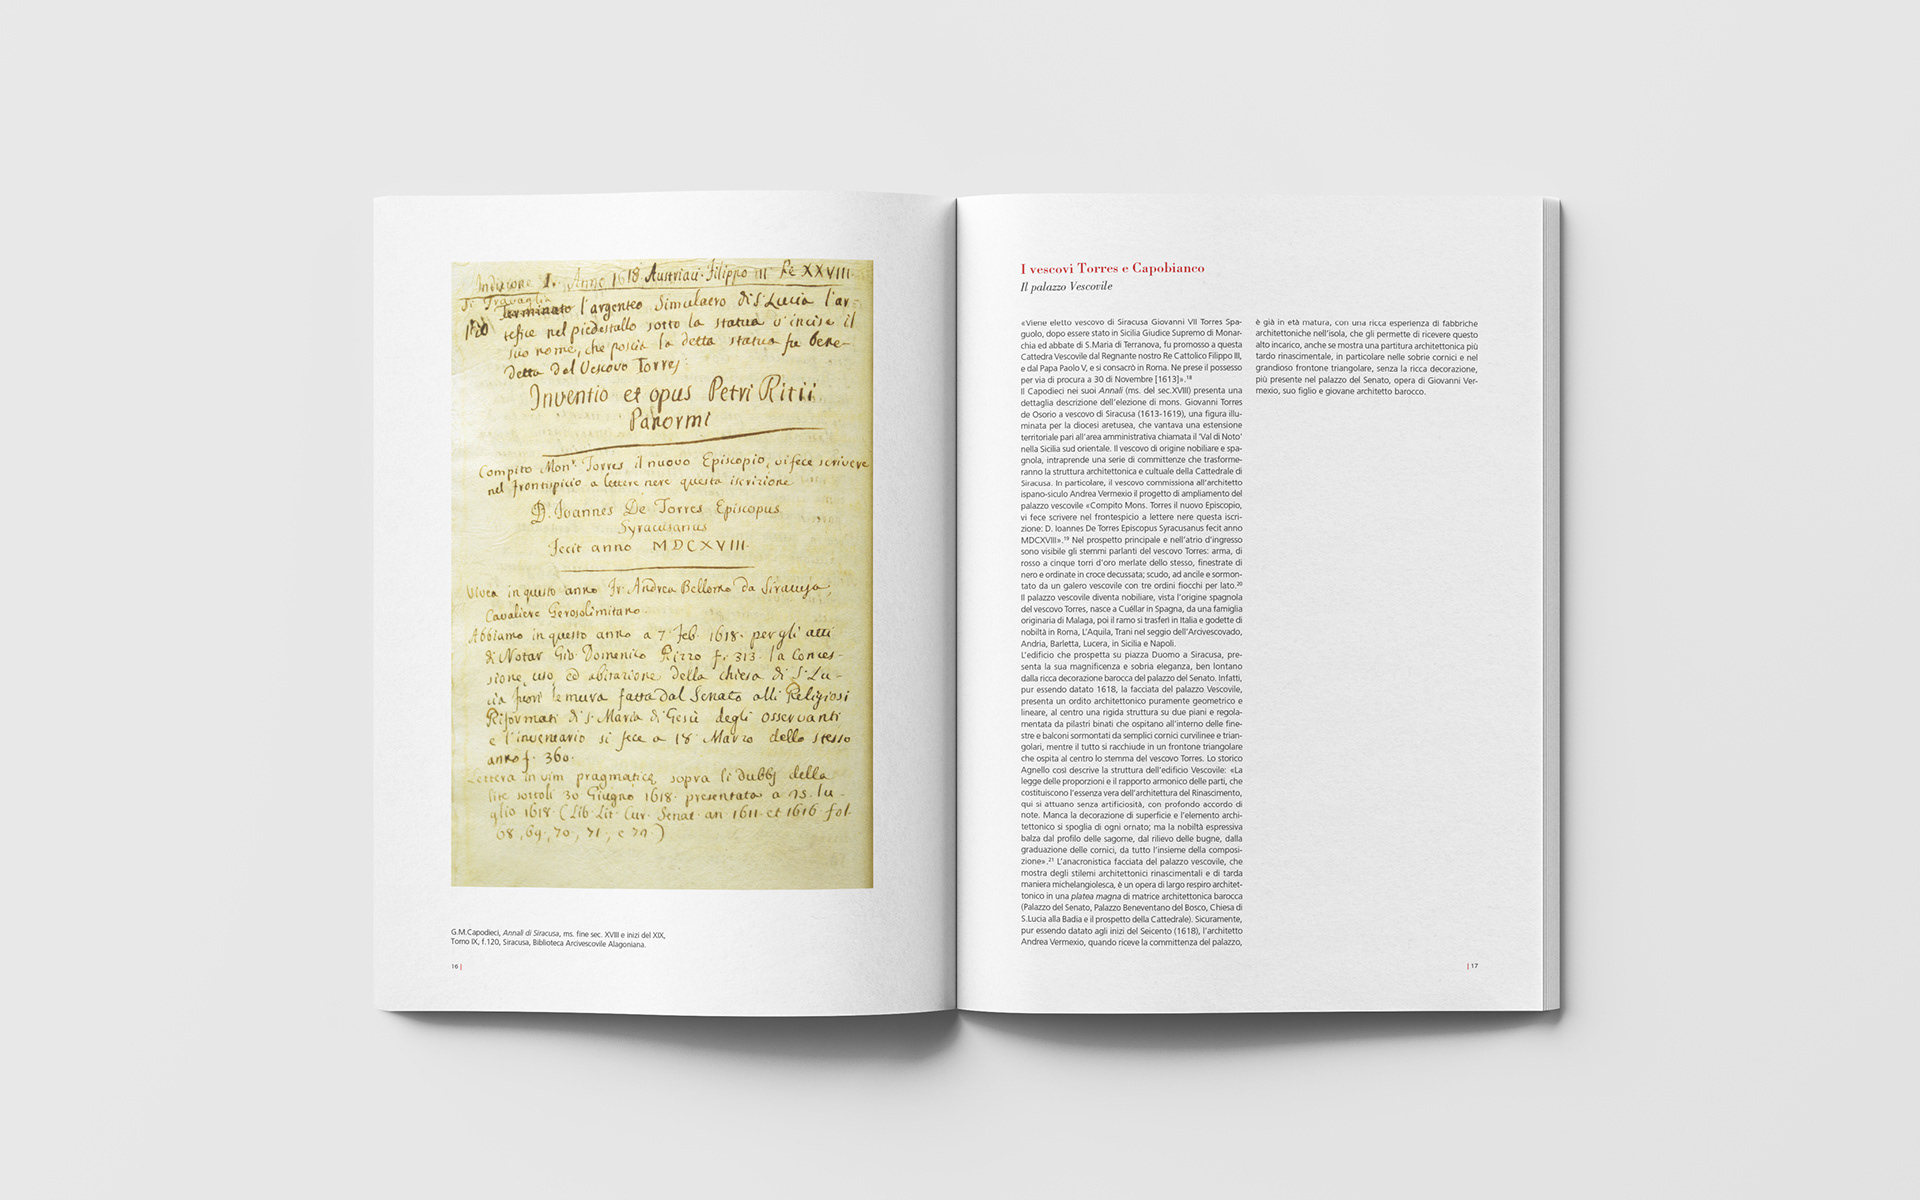 Indizione I. Anno 1618 Austriaci Filippo III Re XXVIII
Si Travaglia
Terminato l'argenteo Simulacro di S. Lucia l'ar-
1620
tefice nel piedestallo sotto la statua v'incise il
suo nome, che poscia la detta statua fu bene-
detta dal Vescovo Torres
Inventio et opus Petri Ritii
Panormi
Compito Monr. Torres il nuovo Episcopio, vi fece scrivere
nel frontispicio a lettere nere questa iscrizione
D. Ioannes De Torres Episcopus
Syracusanus
fecit anno MDCXVIII.
Vivea in questo anno Fr. Andrea Bellomo da Siracusa,
Cavaliere Gerosolimitano.
Abbiamo in questo anno a 7 Feb. 1618. per gli atti
di Notar Gio. Domenico Rizzo f. 313. la Conces-
sione, uso, ed abitazione della chiesa di S. Lu-
cia fuori le mura fatta dal Senato alli Religiosi
Riformati di S. Maria di Gesù degli osservanti
e l'inventario si fece a 18 Marzo dello stesso
anno f. 360.
Lettera in vim pragmaticę sopra li dubbj della
lite sottoli 30 Giugno 1618. presentata a 15. lu-
glio 1618. (Lib. Lit. Cur. Senat. an 1611. et 1616 fol.
68, 69, 70, 71, e 72)
G.M.Capodieci, Annali di Siracusa, ms. fine sec. XVIII e inizi del XIX,
Tomo IX, f.120, Siracusa, Biblioteca Arcivescovile Alagoniana.
16 |
I vescovi Torres e Capobianco
Il palazzo Vescovile
«Viene eletto vescovo di Siracusa Giovanni VII Torres Spa-
guolo, dopo essere stato in Sicilia Giudice Supremo di Monar-
chia ed abbate di S.Maria di Terranova, fu promosso a questa
Cattedra Vescovile dal Regnante nostro Re Cattolico Filippo III,
e dal Papa Paolo V, e si consacrò in Roma. Ne prese il possesso
per via di procura a 30 di Novembre [1613]».18
Il Capodieci nei suoi Annali (ms. del sec.XVIII) presenta una
dettaglia descrizione dell'elezione di mons. Giovanni Torres
de Osorio a vescovo di Siracusa (1613-1619), una figura illu-
minata per la diocesi aretusea, che vantava una estensione
territoriale pari all'area amministrativa chiamata il 'Val di Noto'
nella Sicilia sud orientale. Il vescovo di origine nobiliare e spa-
gnola, intraprende una serie di committenze che trasforme-
ranno la struttura architettonica e cultuale della Cattedrale di
Siracusa. In particolare, il vescovo commissiona all'architetto
ispano-siculo Andrea Vermexio il progetto di ampliamento del
palazzo vescovile «Compito Mons. Torres il nuovo Episcopio,
vi fece scrivere nel frontespicio a lettere nere questa iscri-
zione: D. Ioannes De Torres Episcopus Syracusanus fecit anno
MDCXVIII».19 Nel prospetto principale e nell'atrio d'ingresso
sono visibile gli stemmi parlanti del vescovo Torres: arma, di
rosso a cinque torri d'oro merlate dello stesso, finestrate di
nero e ordinate in croce decussata; scudo, ad ancile e sormon-
tato da un galero vescovile con tre ordini fiocchi per lato.20
Il palazzo vescovile diventa nobiliare, vista l'origine spagnola
del vescovo Torres, nasce a Cuéllar in Spagna, da una famiglia
originaria di Malaga, poi il ramo si trasferì in Italia e godette di
nobiltà in Roma, L'Aquila, Trani nel seggio dell'Arcivescovado,
Andria, Barletta, Lucera, in Sicilia e Napoli.
L'edificio che prospetta su piazza Duomo a Siracusa, pre-
senta la sua magnificenza e sobria eleganza, ben lontano
dalla ricca decorazione barocca del palazzo del Senato. Infatti,
pur essendo datato 1618, la facciata del palazzo Vescovile,
presenta un ordito architettonico puramente geometrico e
lineare, al centro una rigida struttura su due piani e regola-
mentata da pilastri binati che ospitano all'interno delle fine-
stre e balconi sormontati da semplici cornici curvilinee e trian-
golari, mentre il tutto si racchiude in un frontone triangolare
che ospita al centro lo stemma del vescovo Torres. Lo storico
Agnello così descrive la struttura dell'edificio Vescovile: «La
legge delle proporzioni e il rapporto armonico delle parti, che
costituiscono l'essenza vera dell'architettura del Rinascimento,
qui si attuano senza artificiosità, con profondo accordo di
note. Manca la decorazione di superficie e l'elemento archi-
tettonico si spoglia di ogni ornato; ma la nobiltà espressiva
balza dal profilo delle sagome, dal rilievo delle bugne, dalla
graduazione delle cornici, da tutto l'insieme della composi-
zione».21 L'anacronistica facciata del palazzo vescovile, che
mostra degli stilemi architettonici rinascimentali e di tarda
maniera michelangiolesca, è un opera di largo respiro architet-
tonico in una platea magna di matrice architettonica barocca
(Palazzo del Senato, Palazzo Beneventano del Bosco, Chiesa di
S.Lucia alla Badia e il prospetto della Cattedrale). Sicuramente,
pur essendo datato agli inizi del Seicento (1618), l'architetto
Andrea Vermexio, quando riceve la committenza del palazzo,
è già in età matura, con una ricca esperienza di fabbriche
architettoniche nell'isola, che gli permette di ricevere questo
alto incarico, anche se mostra una partitura architettonica più
tardo rinascimentale, in particolare nelle sobrie cornici e nel
grandioso frontone triangolare, senza la ricca decorazione,
più presente nel palazzo del Senato, opera di Giovanni Ver-
mexio, suo figlio e giovane architetto barocco.
| 17